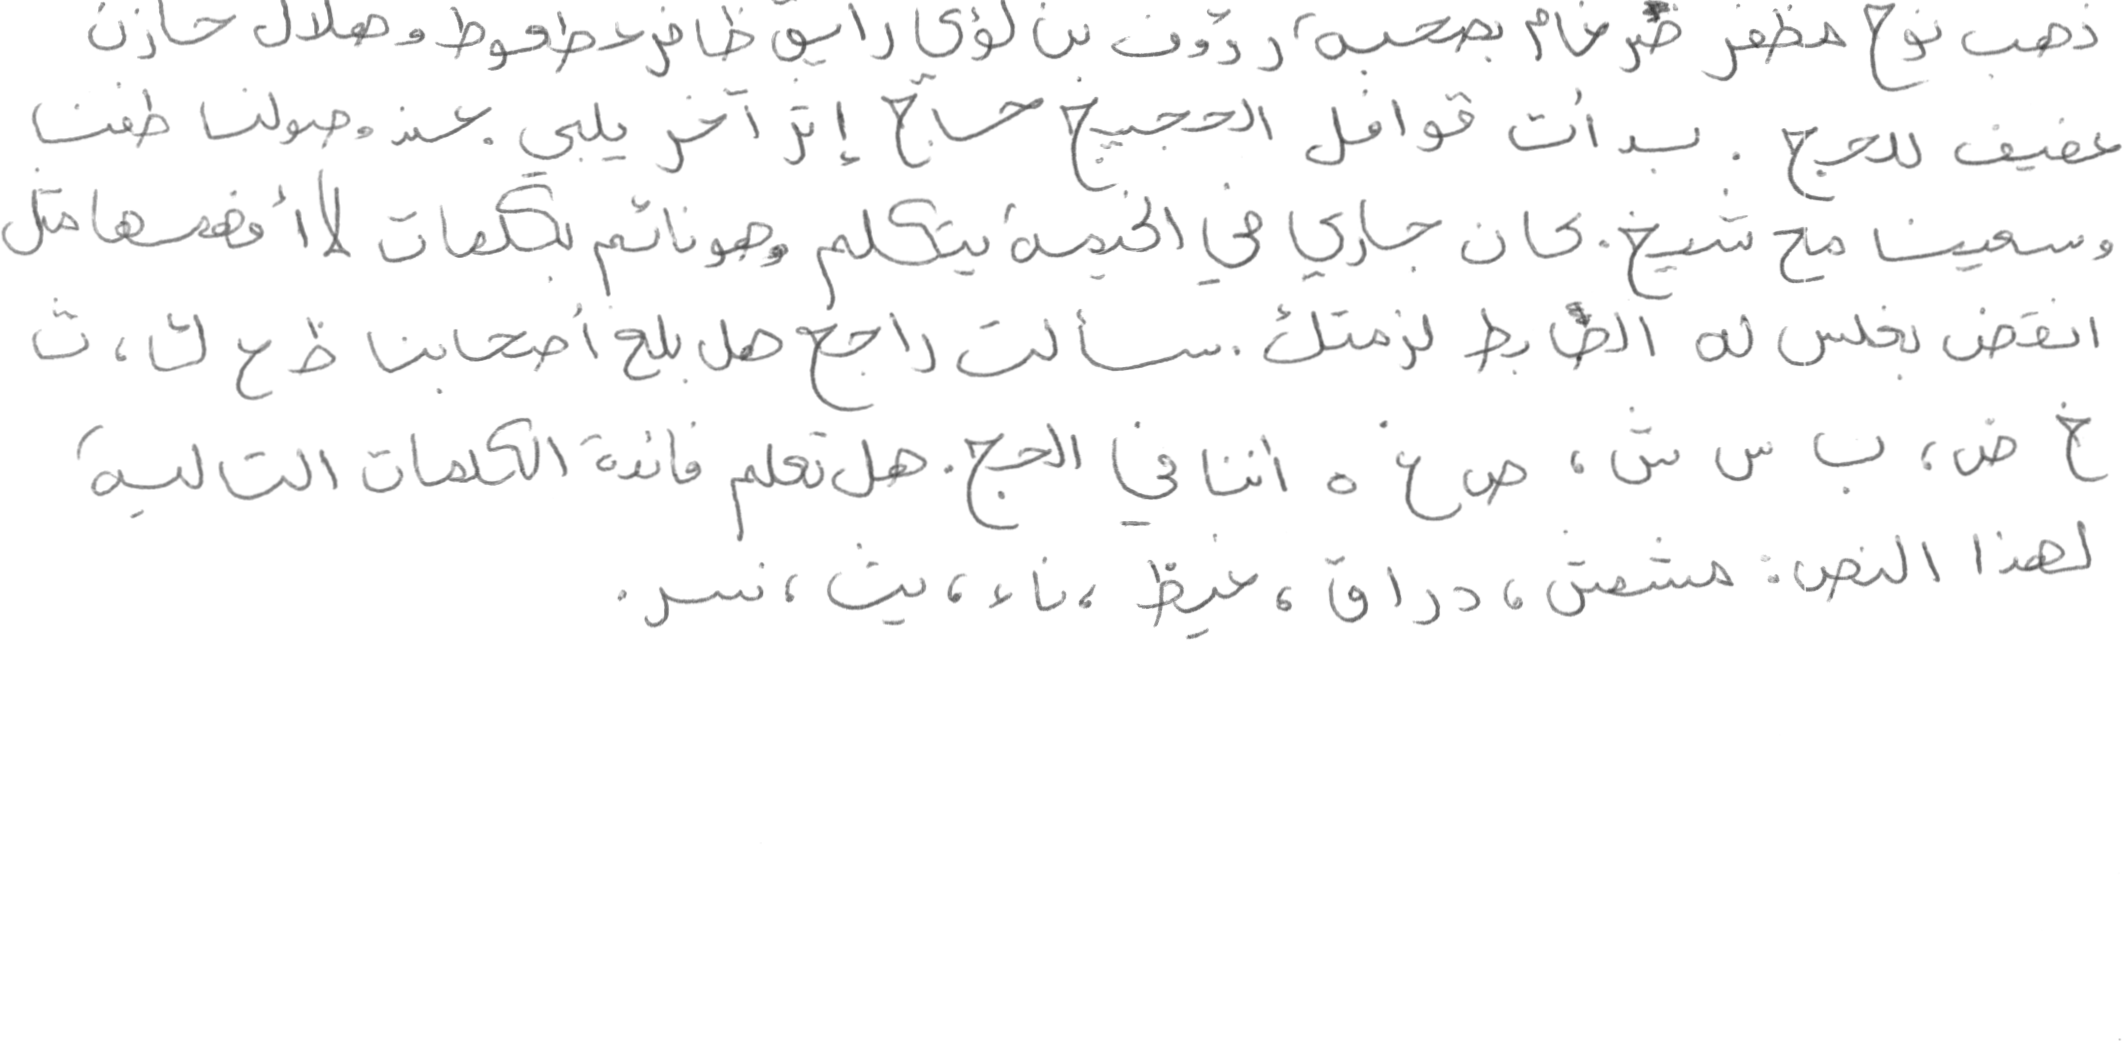 ذهب نوح مظفر ضرغام بصحبة رؤوف بن لؤى رايق ظافر عطعوط وهلال حازن
عفيف للحج . بدأت قوافل الحجيج حاج إثر آخر يلبي . عند وصولنا طفنا
وسعينا مع شيخ . كان جاري في الخيمة يتكلم وهو نائم بكلمات لا أفهمها مثل
انقض بخلس له الضابط لزمتك . سألت راجح هل بلع أصحابنا ظ ع ك ، ث
خ ض ، ب س ش ، ص غ ه أننا في الحج . هل تعلم فائدة الكلمات التالية
لهذا النص : مشمش ، دراق ، غيظ ، ناء ، يث ، نسر .